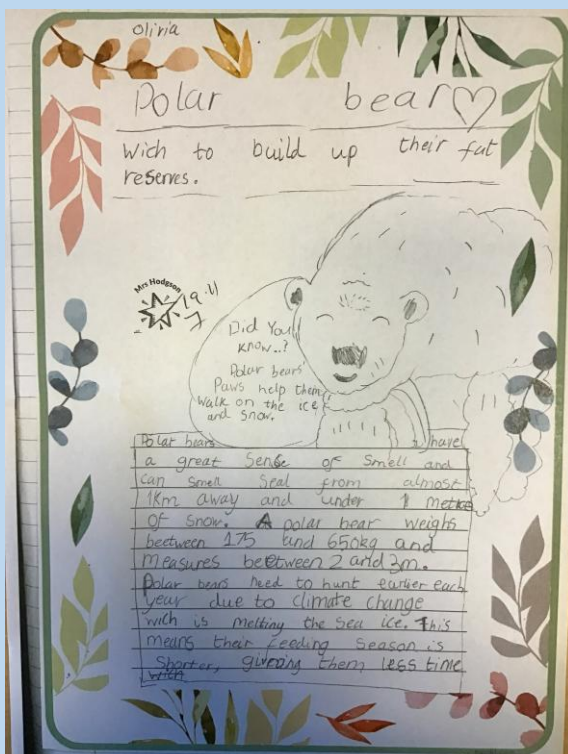 Olivia
Polar bear♡
Wich to build up their fat
reserves.
Mrs Hodgson
Did You
know..?
Polar bears
Paws help them
walk on the ice
and snow.
Polar bears have
a great Sense of Smell and
can smell seal from almost
1km away and under 1 metre
of snow. A polar bear weighs
beetween 175 and 650kg and
measures beetween 2 and 3m.
Polar bears need to hunt earlier each
year due to climate change
wich is melting the sea ice. This
means their feeding season is
shorter, giveing them less time